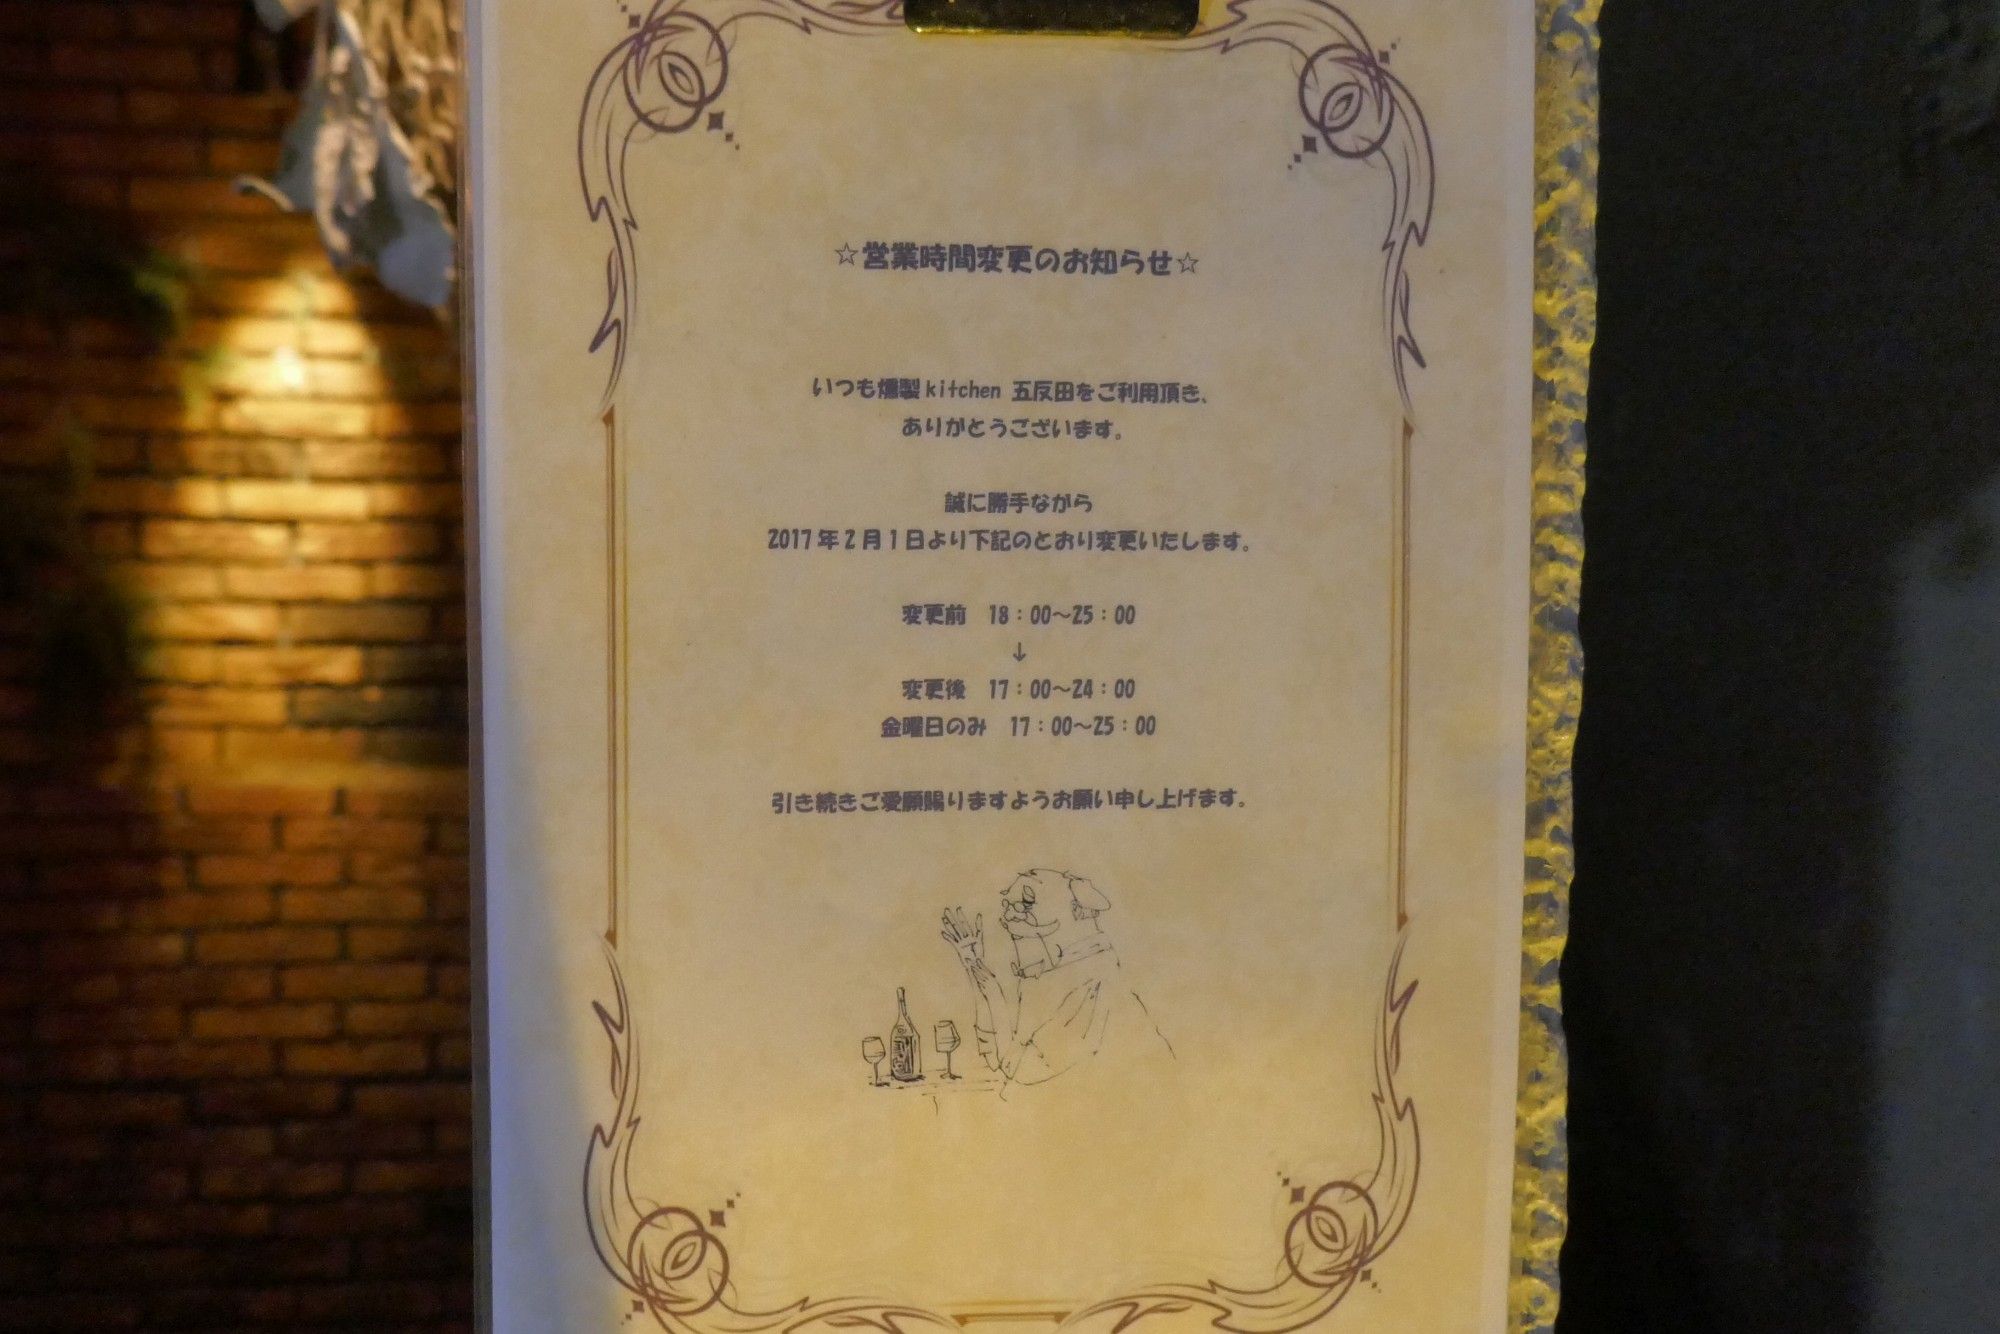 ☆営業時間変更のお知らせ☆
いつも燻製kitchen 五反田をご利用頂き、
ありがとうございます。
誠に勝手ながら
2017年2月1日より下記のとおり変更いたします。
変更前 18:00～25:00
↓
変更後 17:00～24:00
金曜日のみ 17:00～25:00
引き続きご愛願賜りますようお願い申し上げます。